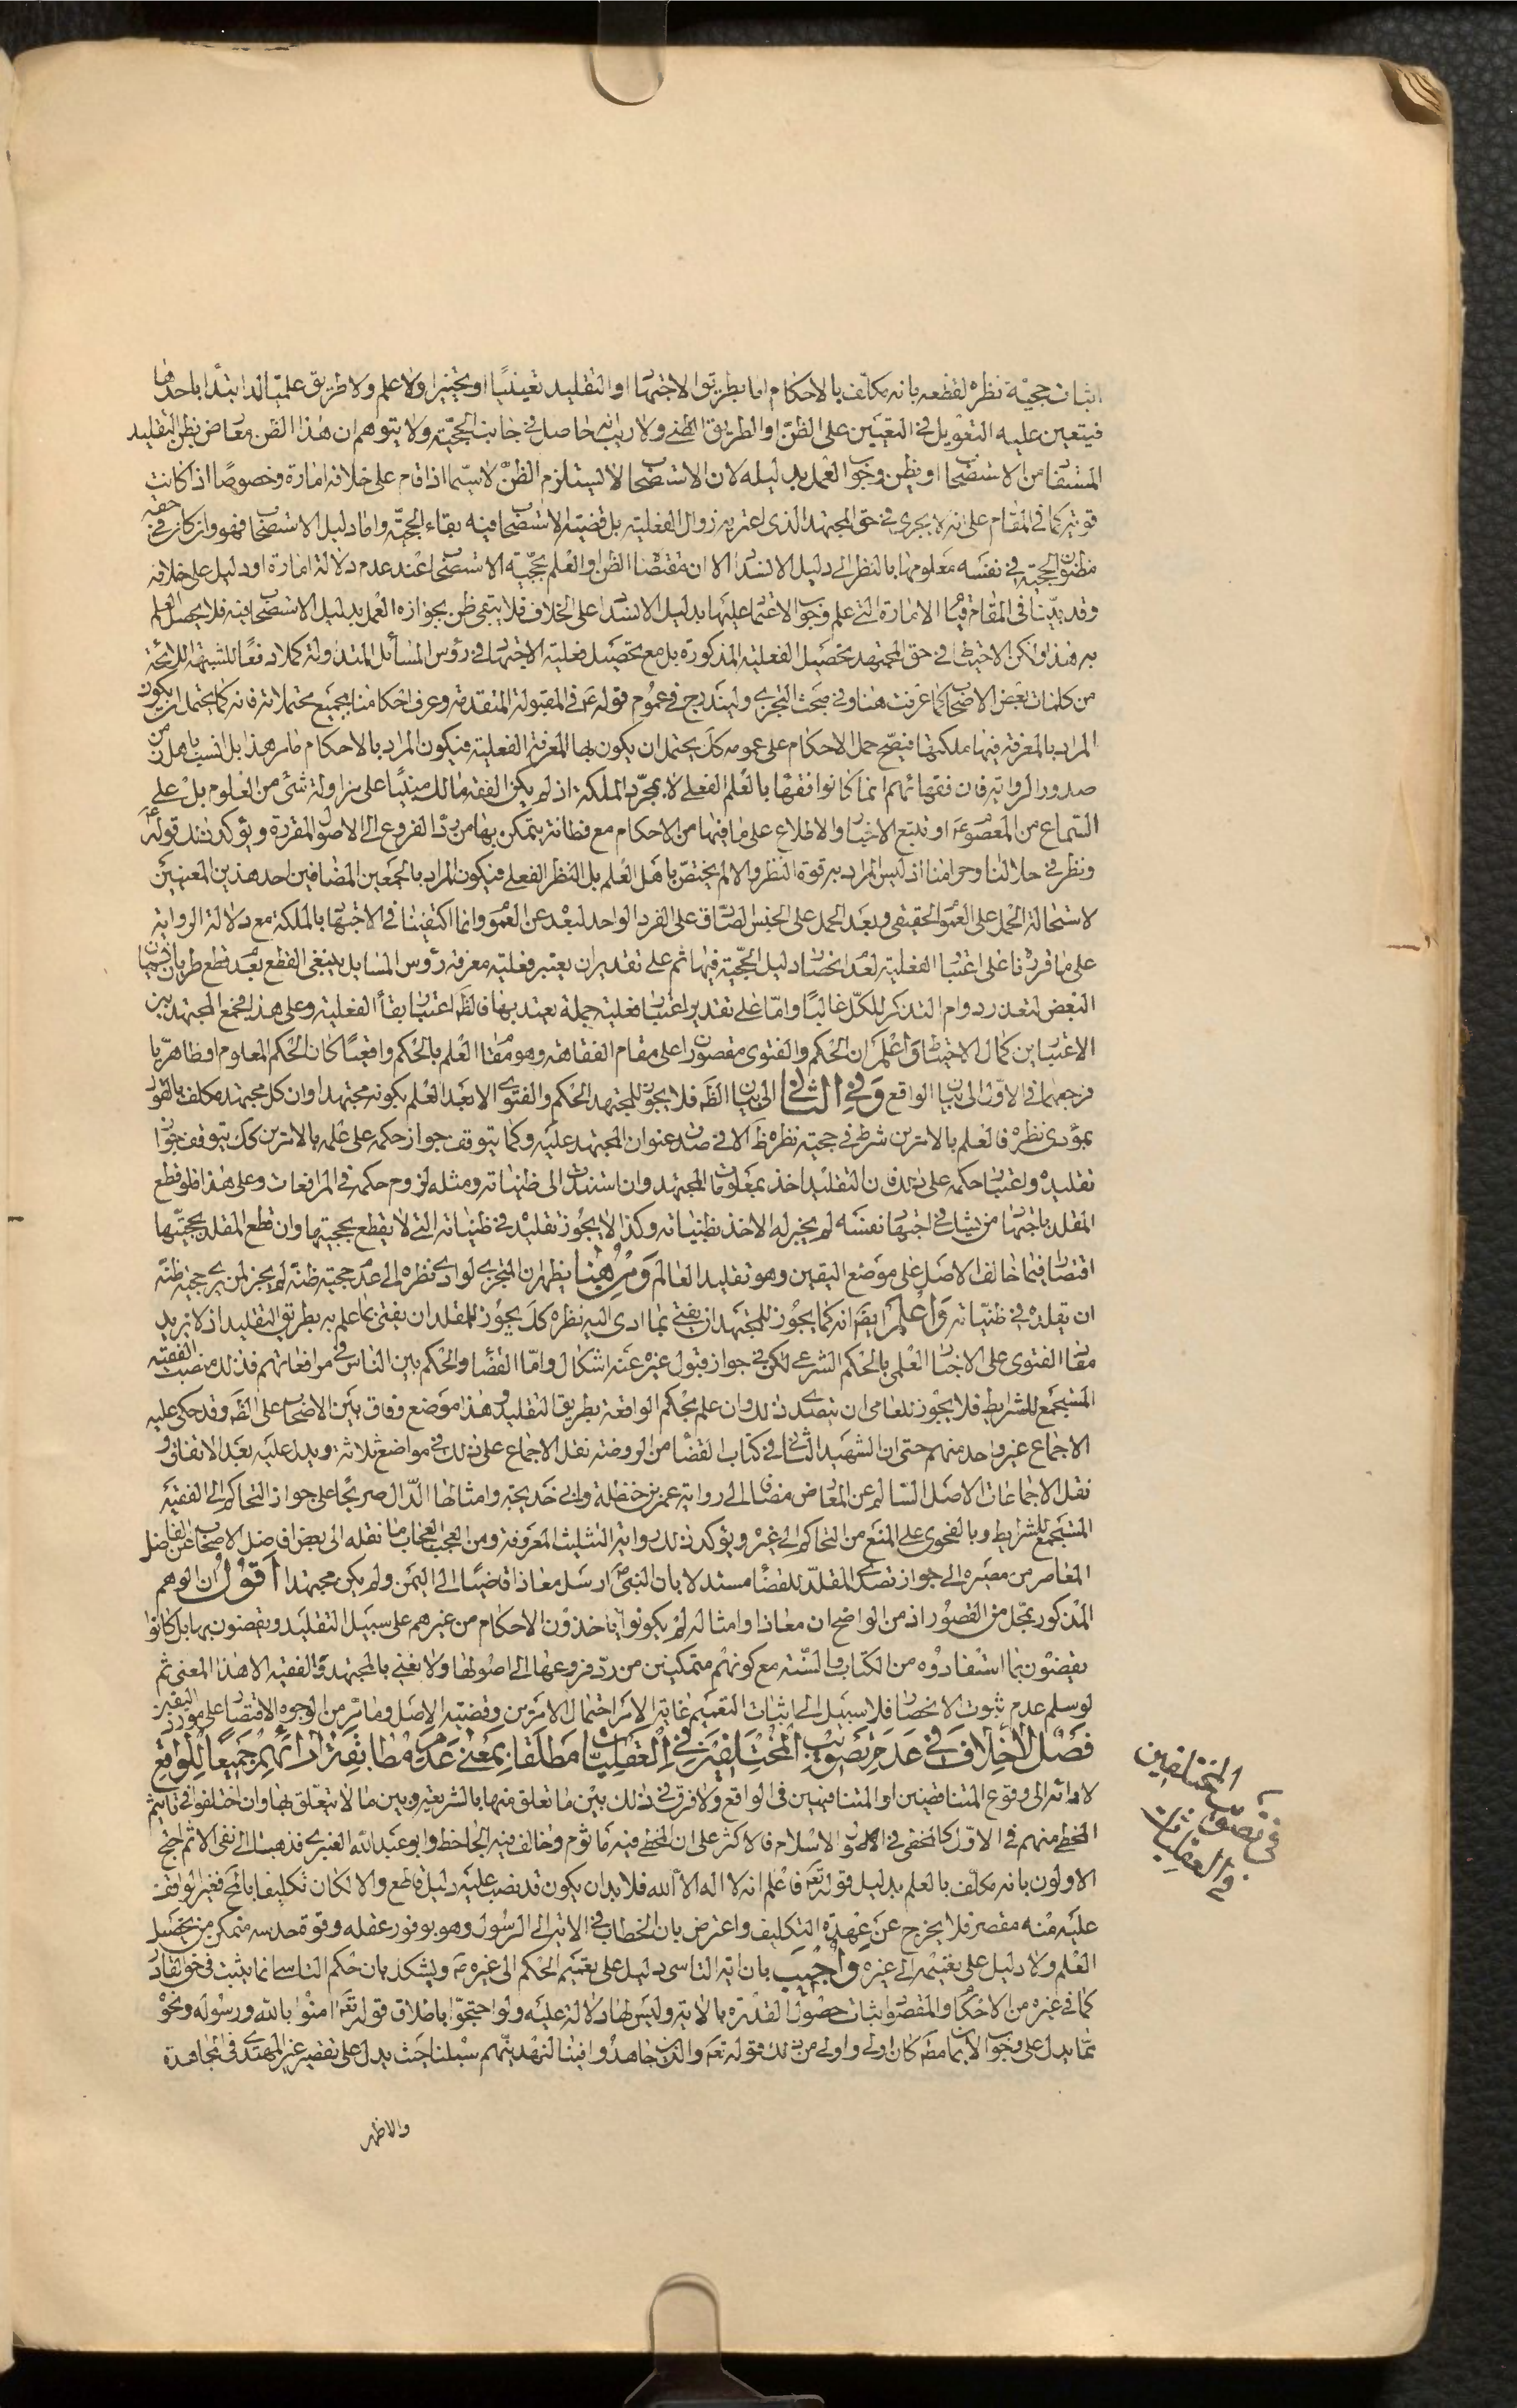 اثبات حجيّة نظره لقطعه بانه مكلّف بالاحكام اما بطريق الاجتهاد او التقليد تعيينيّا او تخييرا ولا علم ولا طريق علميّا لدا ابتداء باحدهما
فيتعين عليه التعويل في التعيين على الظنّ او الطريق الظنى ولا ريب انه حاصل في جانب الحجيّة ولا يتوهم ان هذا الظن معارض بظن التقليد
المستفاد من الاستصحاب او بظن وجوب العمل بدليله لان الاستصحاب لا يستلزم الظنّ لا سيّما اذا قام على خلافه امارة وخصوصًا اذا كانت
قوية كما في المقام على انه لا يجرى في حق المجتهد الذى اعتريه زوال الفعلية بل قضية الاستصحاب فيه بقاء الحجيّة واما دليل الاستصحاب فهو وان كان في حقه
مظنون الحجية في نفسه معلومها بالنظر الى دليل الانسداد الا ان مقتضا الظن او العلم بحجّية الاستصحاب عند عدم دلالة امارة او دليل على خلافه
وقد بيّنا في المقام قيام الامارة التي علم وجوب الاعتماد عليها بدليل الانسداد على الخلاف فلا يبقى ظن بجواز العمل بدليل الاستصحاب فيه فلا يحصل العلم
به هذا ولكن الاحتياط في حق المجتهد تحصيل الفعلية المذكورة بل مع تحصيل فعلية الاجتهاد في رؤس المسائل المتداولة كملا دفعًا للشبهة اللايحة
من كلمات بعض الاصحاب كما عرفت هنا وفي مبحث التجزى وليندرج في عموم قوله ع في المقبولة المتقدمة وعرف احكامنا بجميع محتملاته فانه كما يحتمل ان يكون
المراد بالمعرفة فيها ملكتها فيصح حمل الاحكام على عمومه كك يحتمل ان يكون بها المعرفة الفعلية فيكون المراد بالاحكام ما مر هذا بل انسب باهل زمن
صدور الرواية فان فقهائهم انما كانوا فقها بالعلم الفعلى لا بمجرّد الملكة اذ لم يكن الفقه هنالك مبنيّا على مزاولة شئ من العلوم بل على
السّماع من المعصوم ع او تتبع الاخبار والاطلاع على ما فيها من الاحكام مع فطانة يتمكن بها من ردّ الفروع الى الاصول المقررة ويؤكد ذلك قوله ع
ونظر في حلالنا وحرامنا اذ ليس المراد به قوة النظر والا لم يختصّ باهل العلم بل النظر الفعلى فيكون المراد بالجمعين المضافين احد هذين المعنيين
لاستحالة الحمل على العموم الحقيقى وبعد الحمل على الجنس الصّادق على الفرد الواحد لبعده عن العموم وانما اكتفينا في الاجتهاد بالملكة مع دلالة الرواية
على ما قررنا على اعتبار الفعلية لعدم انحصار دليل الحجّية فيها ثم على تقدير ان يعتبر فعلية معرفة رؤس المسايل ينبغى القطع بعدم قطع طريان نسيان
البعض لتعذر دوام التذكر للكلّ غالبًا وامّا على تقدير اعتبار فعلية جملة يعتد بها فالظ اعتبار بقاء الفعلية وعلى هذا فجمع المجتهد بين
الاعتبارين كمال الاحتياط واعلم ان الحكم والفتوى مقصوران على مقام الفقاهة وهو مقام العلم بالحكم واقعيّا كان الحكم المعلوم او ظاهريّا
فرجعهما في الاوّل الى بيان الواقع وفي الثاني الى بيان الظ فلا يجوز للمجتهد الحكم والفتوى الا بعد العلم بكونه مجتهدا وان كل مجتهد مكلف بالعمل
بمؤدى نظره فالعلم بالامرين شرط في حجية نظره ظ لا في صدق عنوان المجتهد عليه وكما يتوقف جواز حكمه على علمه بالامرين كك يتوقف جواز
تقليده واعتبار حكمه على ذلك فان التقليد اخذ بمعلومات المجتهد وان استندت الى ظنياته ومثله لزوم حكمه في المرافعات وعلى هذا فلو قطع
المقلد باجتهاد من يشك في اجتهاد نفسه لم يجز له الاخذ بظنياته وكذا لا يجوز تقليده في ظنياته التي لا يقطع بحجيتها وان قطع المقلد بحجيّتها
اقتصارا فيما خالف الاصل على موضع اليقين وهو تقليد العالم ومن هنا يظهر ان المتجزى لو ادى نظره الى عدم حجية ظنّه لم يجز لمن يرى حجية ظنّه
ان يقلده في ظنيّاته واعلم ايض انه كما يجوز للمجتهد ان يفتى بما ادى اليه نظره كك يجوز للمقلد ان يفتى بما علم به بطريق التقليد اذ لا يزيد
مفاد الفتوى على الاخبار العلمى بالحكم الشرعى لكن في جواز قبول غيره عنه اشكال وامّا القضاء والحكم بين الناس في مرافعاتهم فذلك منصب الفقيه
المستجمع للشرايط فلا يجوز للعامى ان يتصدى ذلك وان علم بحكم الواقعة بطريق التقليد وهذا موضع وفاق بين الاصحاب على الظ وقد حكى عليه
الاجماع غير واحد منهم حتى ان الشهيد الثاني في كتاب القضا من الروضة نقل الاجماع على ذلك في مواضع ثلاثة ويدل عليه بعد الاتفاق و
نقل الاجماعات الاصل السّالم عن المعارض مضافا الى رواية عمر بن حنظلة وابى خديجة وامثالها الدّال صريحًا على جواز التحاكم الى الفقيه
المستجمع للشرايط وبالفحوى على المنع من التحاكم الى غيره ويؤكد ذلك رواية التثليث المعروفة ومن العجب العجاب ما نقله الى بعض افاضل الاصحاب عن الفاضل
المعاصر من مصيره الى جواز تصدى المقلّد للقضاء مستدلا بان النبي ص ارسل معاذا قاضيًا الى اليمن ولم يكن مجتهدا اقول ان الوهم
المذكور بمحل من القصور اذ من الواضح ان معاذا وامثاله لم يكونوا ياخذون الاحكام من غيرهم على سبيل التقليد ويقضون بها بل كانوا
يقضون بما استفادوه من الكتاب والسّنة مع كونهم متمكنين من ردّ فروعها الى اصولها ولا نعنى بالمجتهد والفقيه الا هذا المعنى ثم
لو سلم عدم ثبوت الانحصار فلا سبيل الى اثبات التعميم غاية الامر احتمال الامرين وقضية الاصل وما مر من الوجوه الاقتصار على مورد اليقين
فصل لا خلاف في عدم تصويب المختلفين في العقليات مطلقا بمعنى عدم مطابقة آرائهم جميعًا للواقع
لادائه الى وقوع المتناقضين او المتنافيين في الواقع ولا فرق في ذلك بين ما تعلق منها بالشريعة وبين ما لا يتعلّق بها وان اختلفوا في تاثيم
المخطى منهم في الاوّل كالمخطى في الاسلام فالاكثر على ان المخطى فيه ماثوم وخالف فيه الجاحظ وابو عبدالله العنبرى فذهبا الى نفى الاثم احتج
الاولون بانه مكلّف بالعلم بدليل قوله تع فاعلم انه لا اله الا الله فلا بد ان يكون قد نصب عليه دليل قاطع والا لكان تكليفا بالمحال فغير الواقف
عليه منه مقصر فلا يخرج عن عهدة التكليف واعترض بان الخطاب في الاية الى الرسول وهو بوفور عقله وقوة حدسه متمكن من تحصيل
العلم ولا دليل على تعميمه الى غيره واجيب بان اية التاسى دليل على تعميم الحكم الى غيره ع ويشكل بان حكم التاسى انما يثبت في حق القادر
كما في غيره من الاحكام والمقصود اثبات حصول القدرة بالاية وليس لها دلالة عليه ولو احتجوّا باطلاق قوله تع امنوا بالله ورسوله ونحو
ممّا يدل على وجوب الايمان مط كان اولى واولى من ذلك قوله تع والذين جاهدوا فينا لنهدينّهم سبلنا حيث يدل على تقصير غير المهتدى في المجاهدة
والاظهر
في تصويب المختلفين
في العقليات